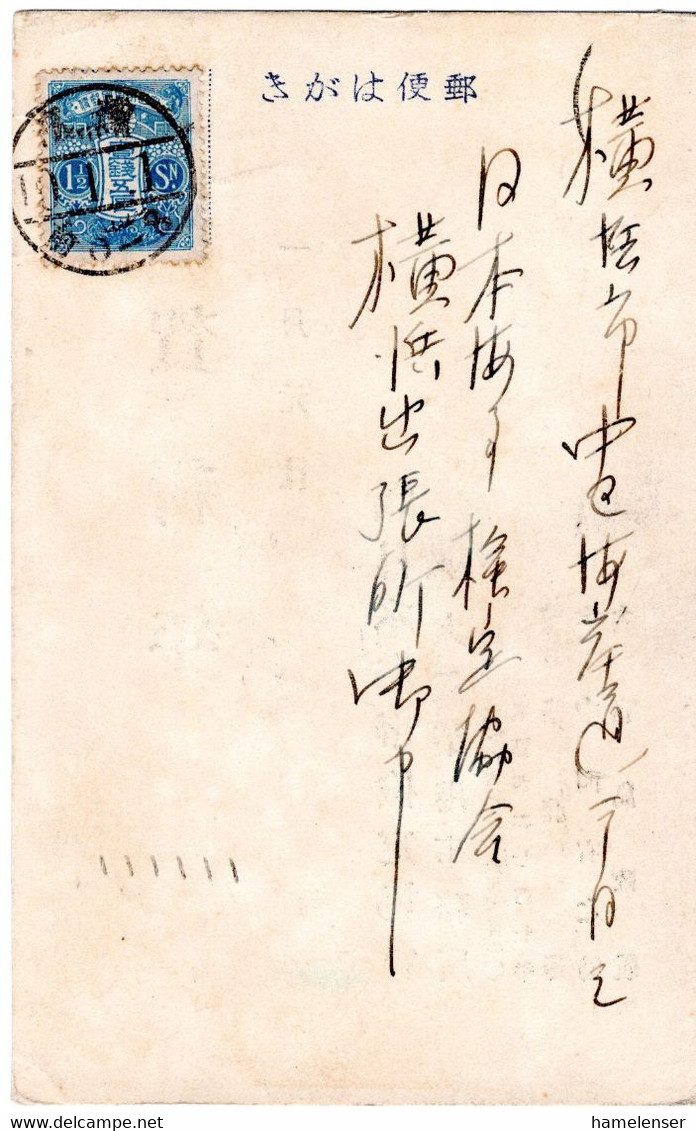 郵便はがき
横浜市中区海岸通一丁目
日本海事検定協会
横浜出張所御中
1½ SN
壹錢五厘
hamelenser